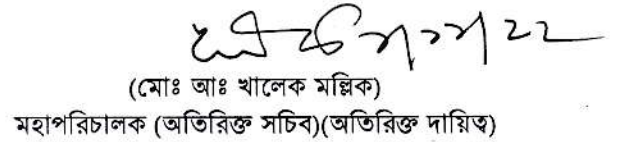 (মোঃ আঃ খালেক মল্লিক)
মহাপরিচালক (অতিরিক্ত সচিব)(অতিরিক্ত দায়িত্ব)